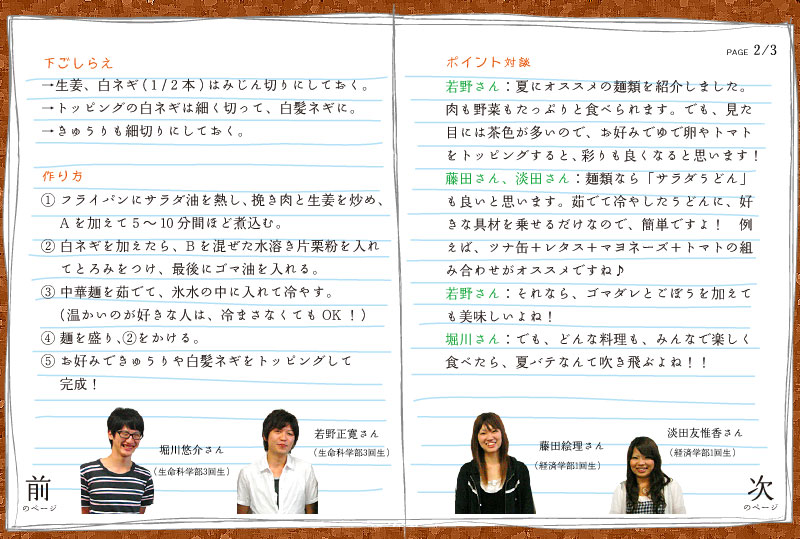 下ごしらえ
→生姜、白ネギ(1/2本)はみじん切りにしておく。
→トッピングの白ネギは細く切って、白髪ネギに。
→きゅうりも細切りにしておく。
作り方
① フライパンにサラダ油を熱し、挽き肉と生姜を炒め、
Aを加えて5～10分間ほど煮込む。
② 白ネギを加えたら、Bを混ぜた水溶き片栗粉を入れ
てとろみをつけ、最後にゴマ油を入れる。
③ 中華麺を茹でて、氷水の中に入れて冷やす。
(温かいのが好きな人は、冷まさなくてもOK！)
④ 麺を盛り、②をかける。
⑤ お好みできゅうりや白髪ネギをトッピングして
完成！
堀川悠介さん
(生命科学部3回生)
若野正寛さん
(生命科学部3回生)
前
のページ
PAGE 2/3
ポイント対談
若野さん：夏にオススメの麺類を紹介しました。
肉も野菜もたっぷりと食べられます。でも、見た
目には茶色が多いので、お好みでゆで卵やトマト
をトッピングすると、彩りも良くなると思います！
藤田さん、淡田さん：麺類なら「サラダうどん」
も良いと思います。茹でて冷やしたうどんに、好
きな具材を乗せるだけなので、簡単ですよ！ 例
えば、ツナ缶＋レタス＋マヨネーズ＋トマトの組
み合わせがオススメですね♪
若野さん：それなら、ゴマダレとごぼうを加えて
も美味しいよね！
堀川さん：でも、どんな料理も、みんなで楽しく
食べたら、夏バテなんて吹き飛ぶよね！！
藤田絵理さん
(経済学部1回生)
淡田友惟香さん
(経済学部1回生)
次
のページ